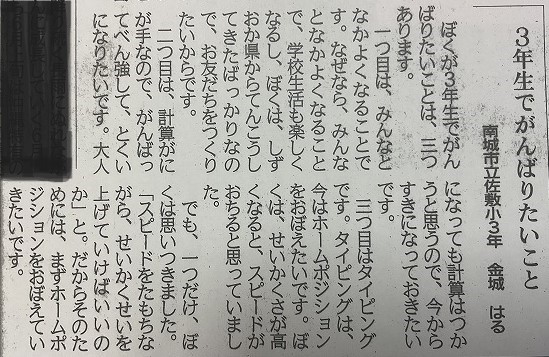 3年生でがんばりたいこと
南城市立佐敷小3年　金城　はる
　ぼくが3年生でがん
ばりたいことは、三つ
あります。
　一つ目は、みんなと
なかよくなることで
す。なぜなら、みんな
となかよくなること
で、学校生活も楽しく
なるし、ぼくは、しず
おか県からてんこうし
てきたばっかりなの
で、お友だちをつくり
たいからです。
　二つ目は、計算がに
が手なので、がんばっ
てべん強して、とくい
になりたいです。大人
になっても計算はつか
うと思うので、今から
すきになっておきたい
です。
　三つ目はタイピング
です。タイピングは、
今はホームポジション
をおぼえたいです。ぼ
くは、せいかくさが高
くなると、スピードが
おちると思っていまし
た。
　でも、一つだけ、ぼ
くは思いつきました。
「スピードをたもちな
がら、せいかくせいを
上げていけばいいの
か」と。だからそのた
めには、まずホームポ
ジションをおぼえてい
きたいです。